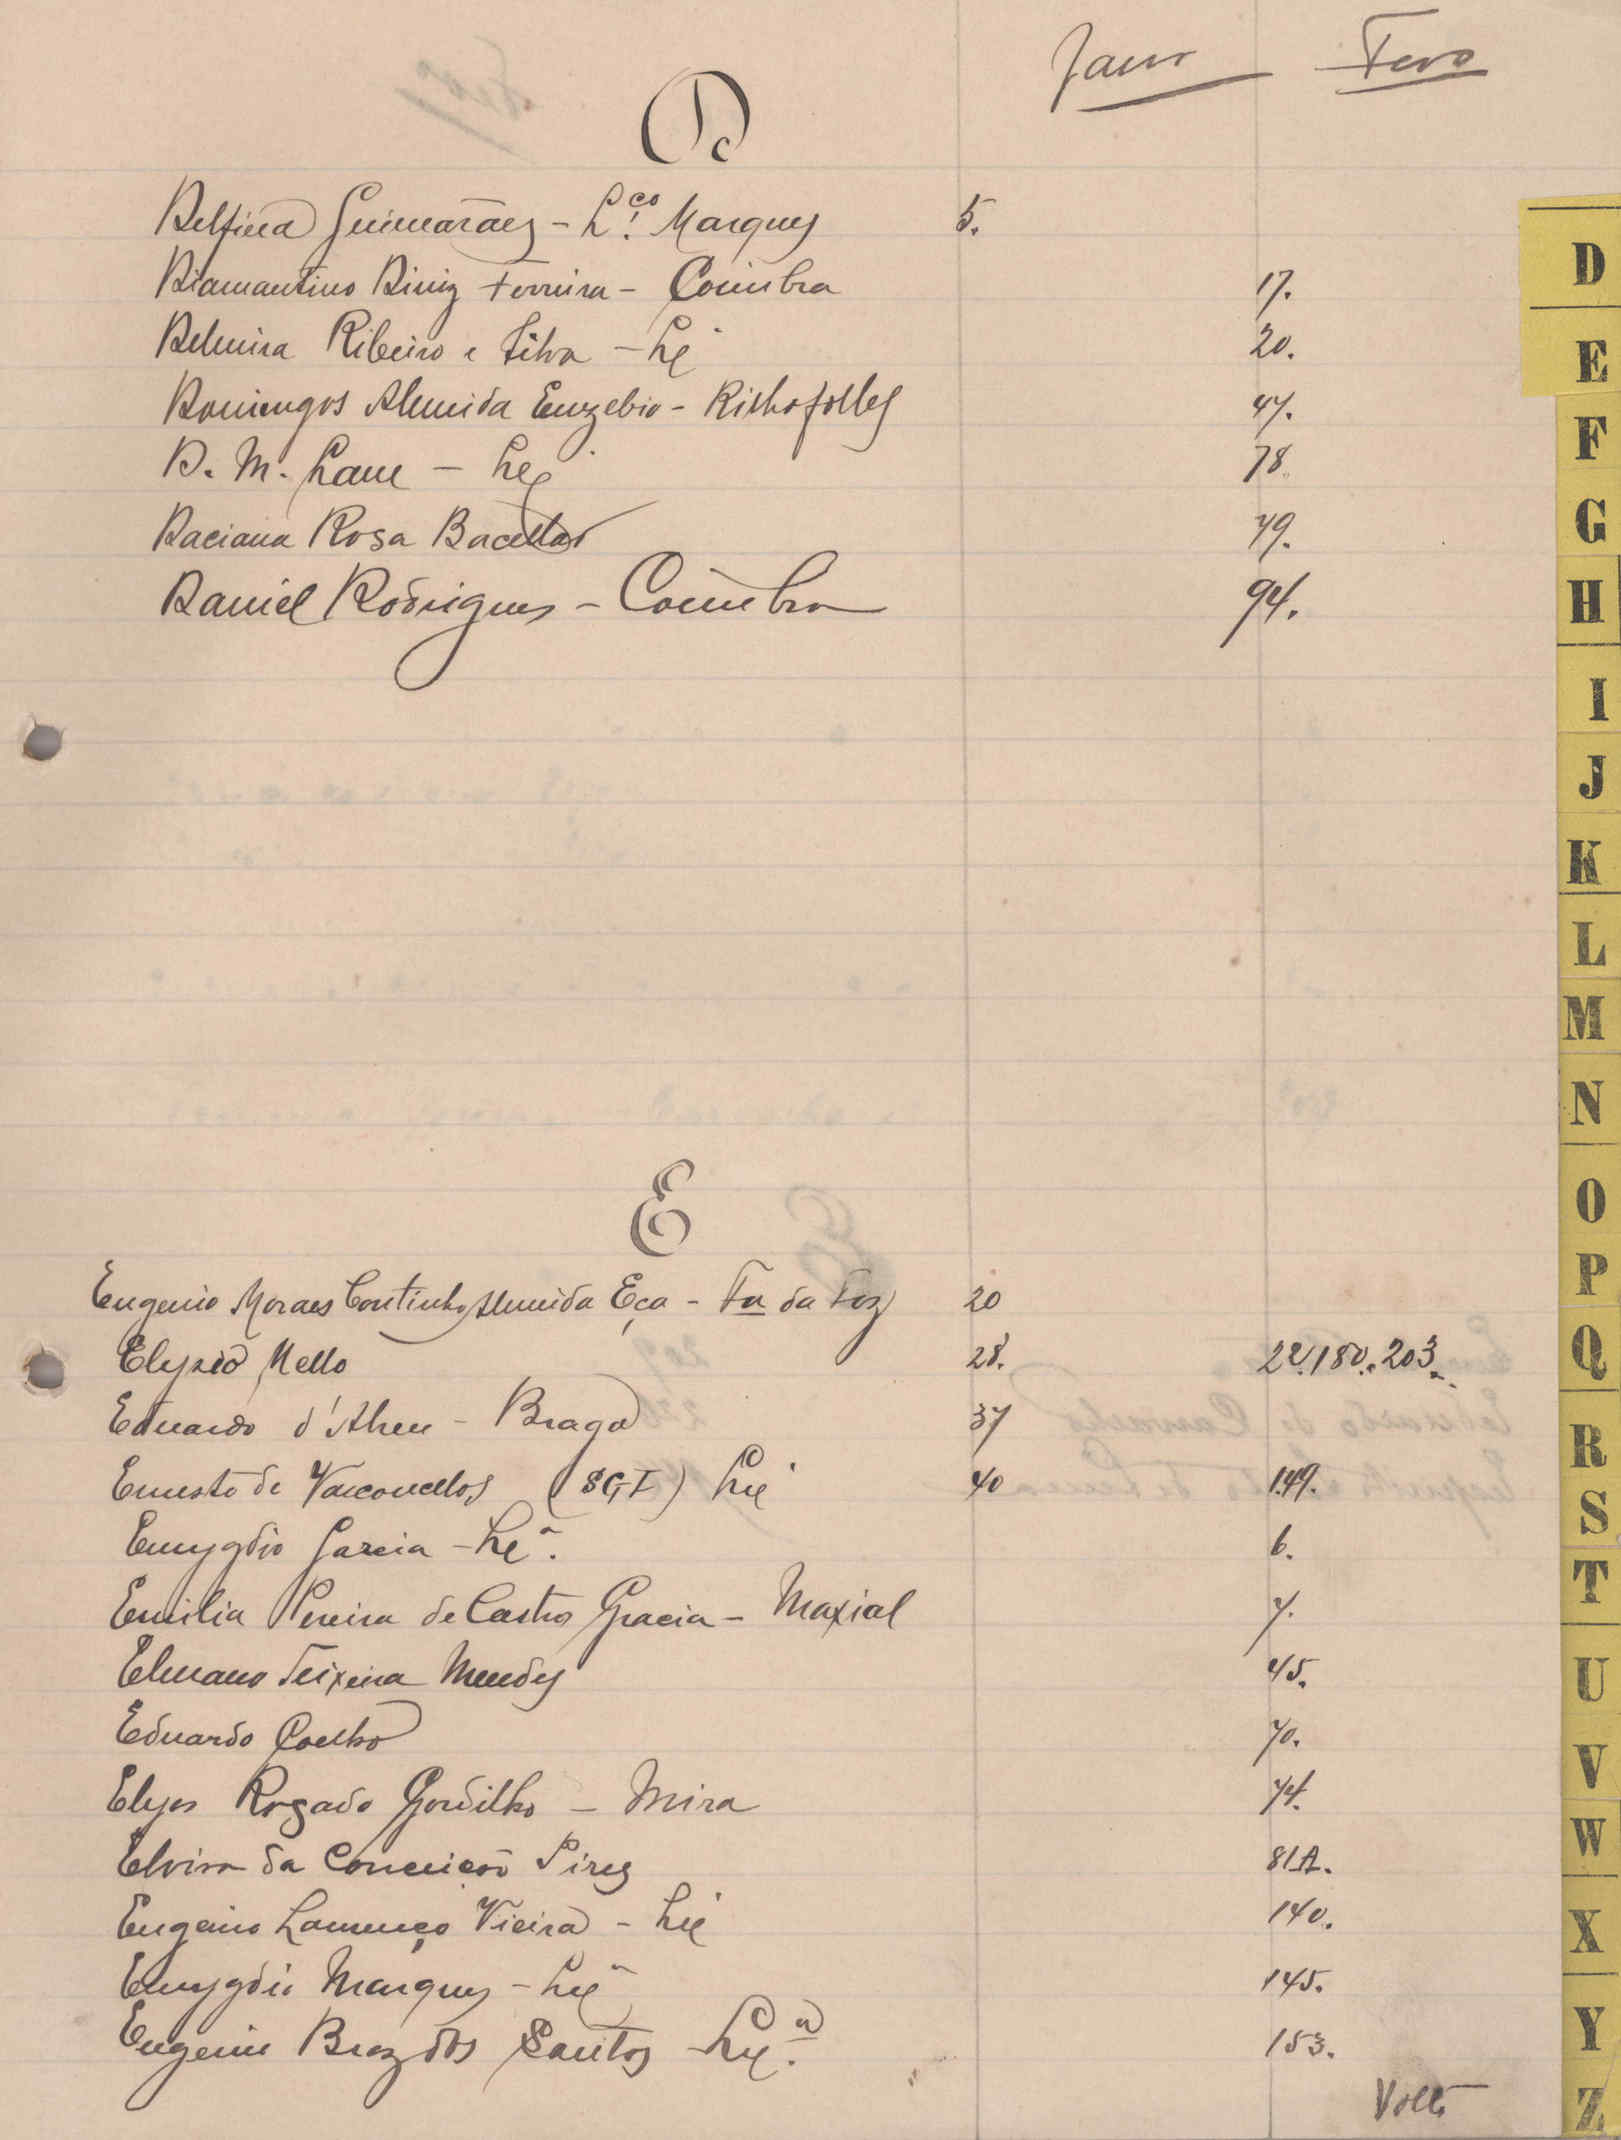 Janro Fevro
D
Delfina Guimarães - L.ço Marques 5.
Diamantino Diniz Ferreira - Coimbra 17.
Delmira Ribeiro e Silva - Lxa 20.
Domingos Almeida Euzebio - 47.
D. M. Lane - Lxa 78.
Daciana Rosa Bacellar 79.
Daniel Rodrigues - Coimbra 94.
E
Eugenio Moraes Coutinho Almeida Eça - Fa da Foz 20
Elyzio Mello 28. 22. 180. 203.
Eduardo d'Abreu - Braga 37
Ernesto de Vasconcellos (SGI) Lxa 40 149.
Emygdio Garcia - Lxa. 6.
Emilia Pereira de Castro Gracia - Maxial 7.
Elmano Teixeira Mendes 45.
Eduardo Coelho 70.
Elyos Rogado Gordilho - Mira 74.
Elvira da Conceição Pires 81A.
Eugenio Lourenço Vieira - Lxa 140.
Emygdio Marques - Lxa 145.
Eugenio Braz dos Santos Lxa. 153.
Volte
D
E
F
G
H
I
J
K
L
M
N
O
P
Q
R
S
T
U
V
W
X
Y
Z